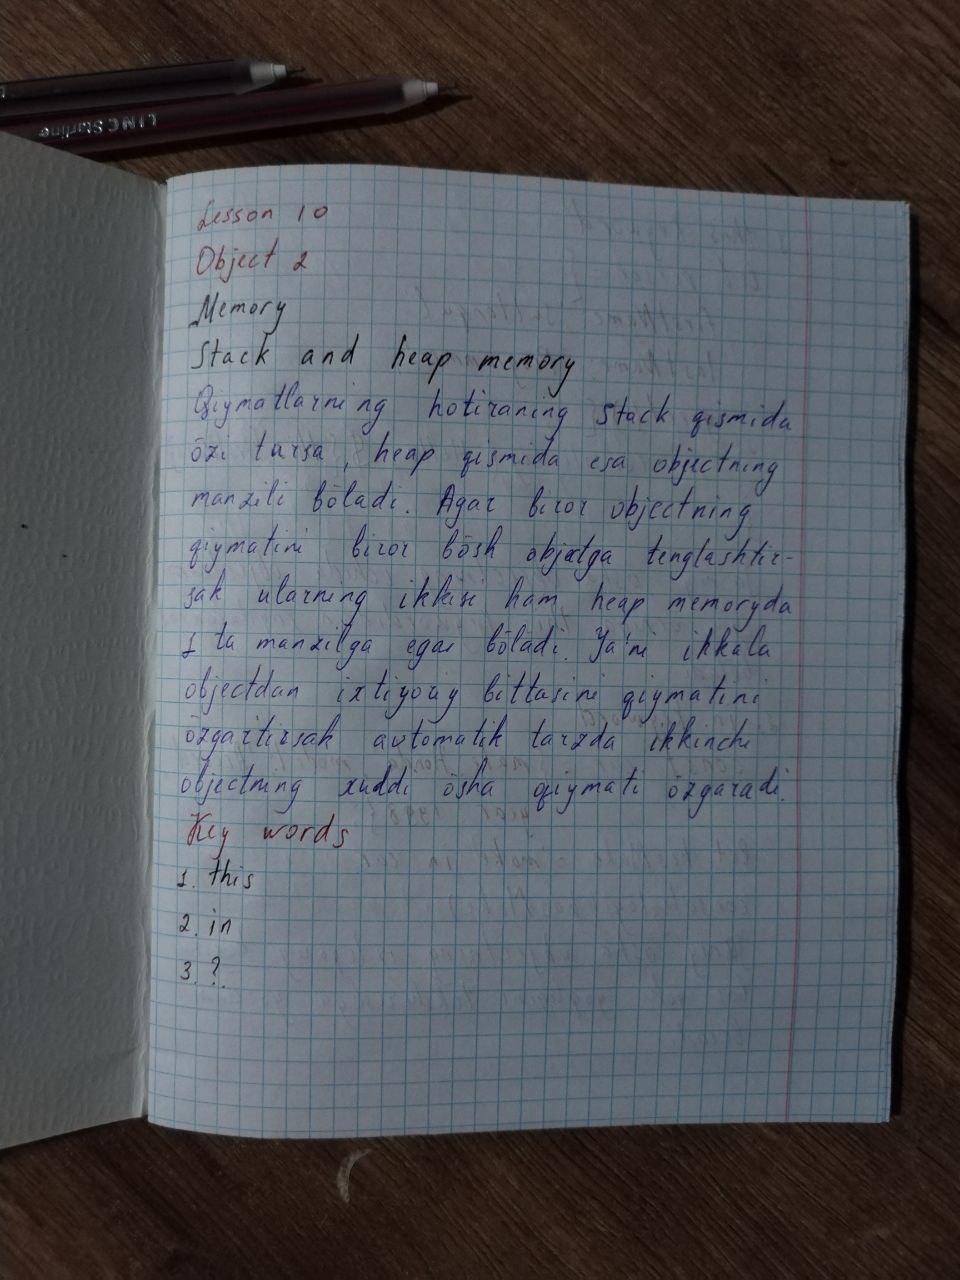 LINC Starline
Lesson 10
Object 2
Memory
Stack and heap memory
Qiymatlarning hotiraning Stack qismida
ōzi tursa, heap qismida esa objectning
manzili bōladi. Agar biror objectning
qiymatini biror bōsh objectga tenglashtir-
sak ularning ikkisi ham heap memoryda
1 ta manzilga ega bōladi. Ya'ni ikkala
objectdan ixtiyoriy bittasini qiymatini
ōzgartirsak avtomatik tarzda ikkinchi
objectning xuddi ōsha qiymati ōzgaradi.
Key words
1. this
2. in
3. ?.